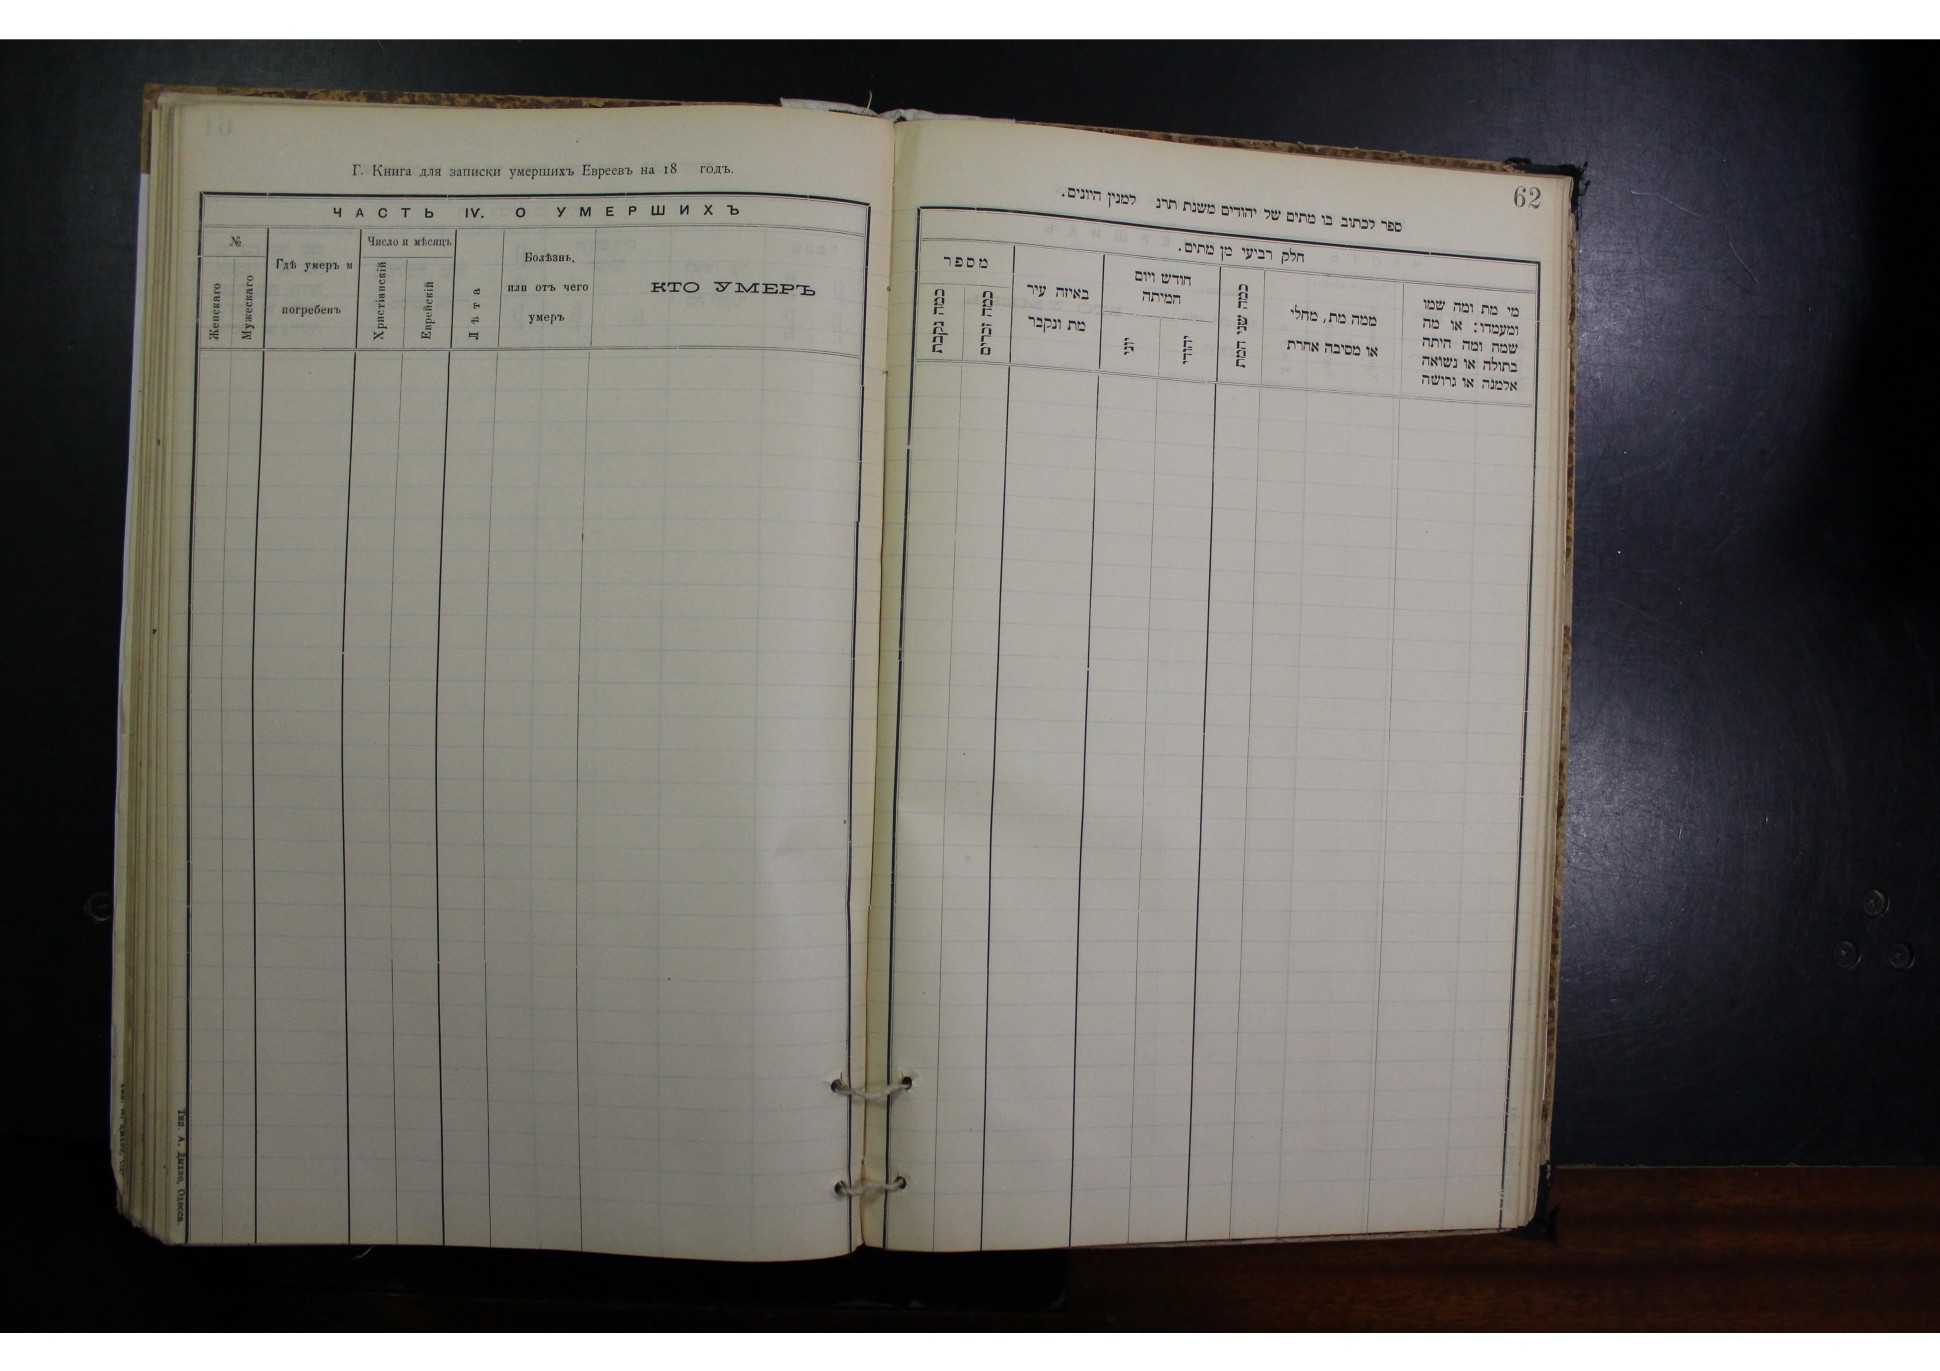 Г. Книга для записки умершихъ Евреевъ на 18 годъ.
ЧАСТЬ IV. О УМЕРШИХЪ
№
Женскаго
Мужескаго
Гдѣ умеръ и
погребенъ
Число и мѣсяцъ
Христіанскій
Еврейскій
Лѣта
Болѣзнь,
или отъ чего
умеръ
КТО УМЕРЪ
Тип. А. Дыхно, Одесса.
62
ספר לכתוב בו מתים של יהודים משנת תרנ למנין היונים.
חלק רביעי מן מתים.
מספר
כמה נקבות
כמה זכרים
באיזה עיר
מת ונקבר
חודש ויום
המיתה
יוני
יהודי
כמה שני המת
ממה מת, מחלי
או מסיבה אחרת
מי מת ומה שמו
ומעמדו: או מה
שמה ומה היתה
בתולה או נשואה
אלמנה או גרושה